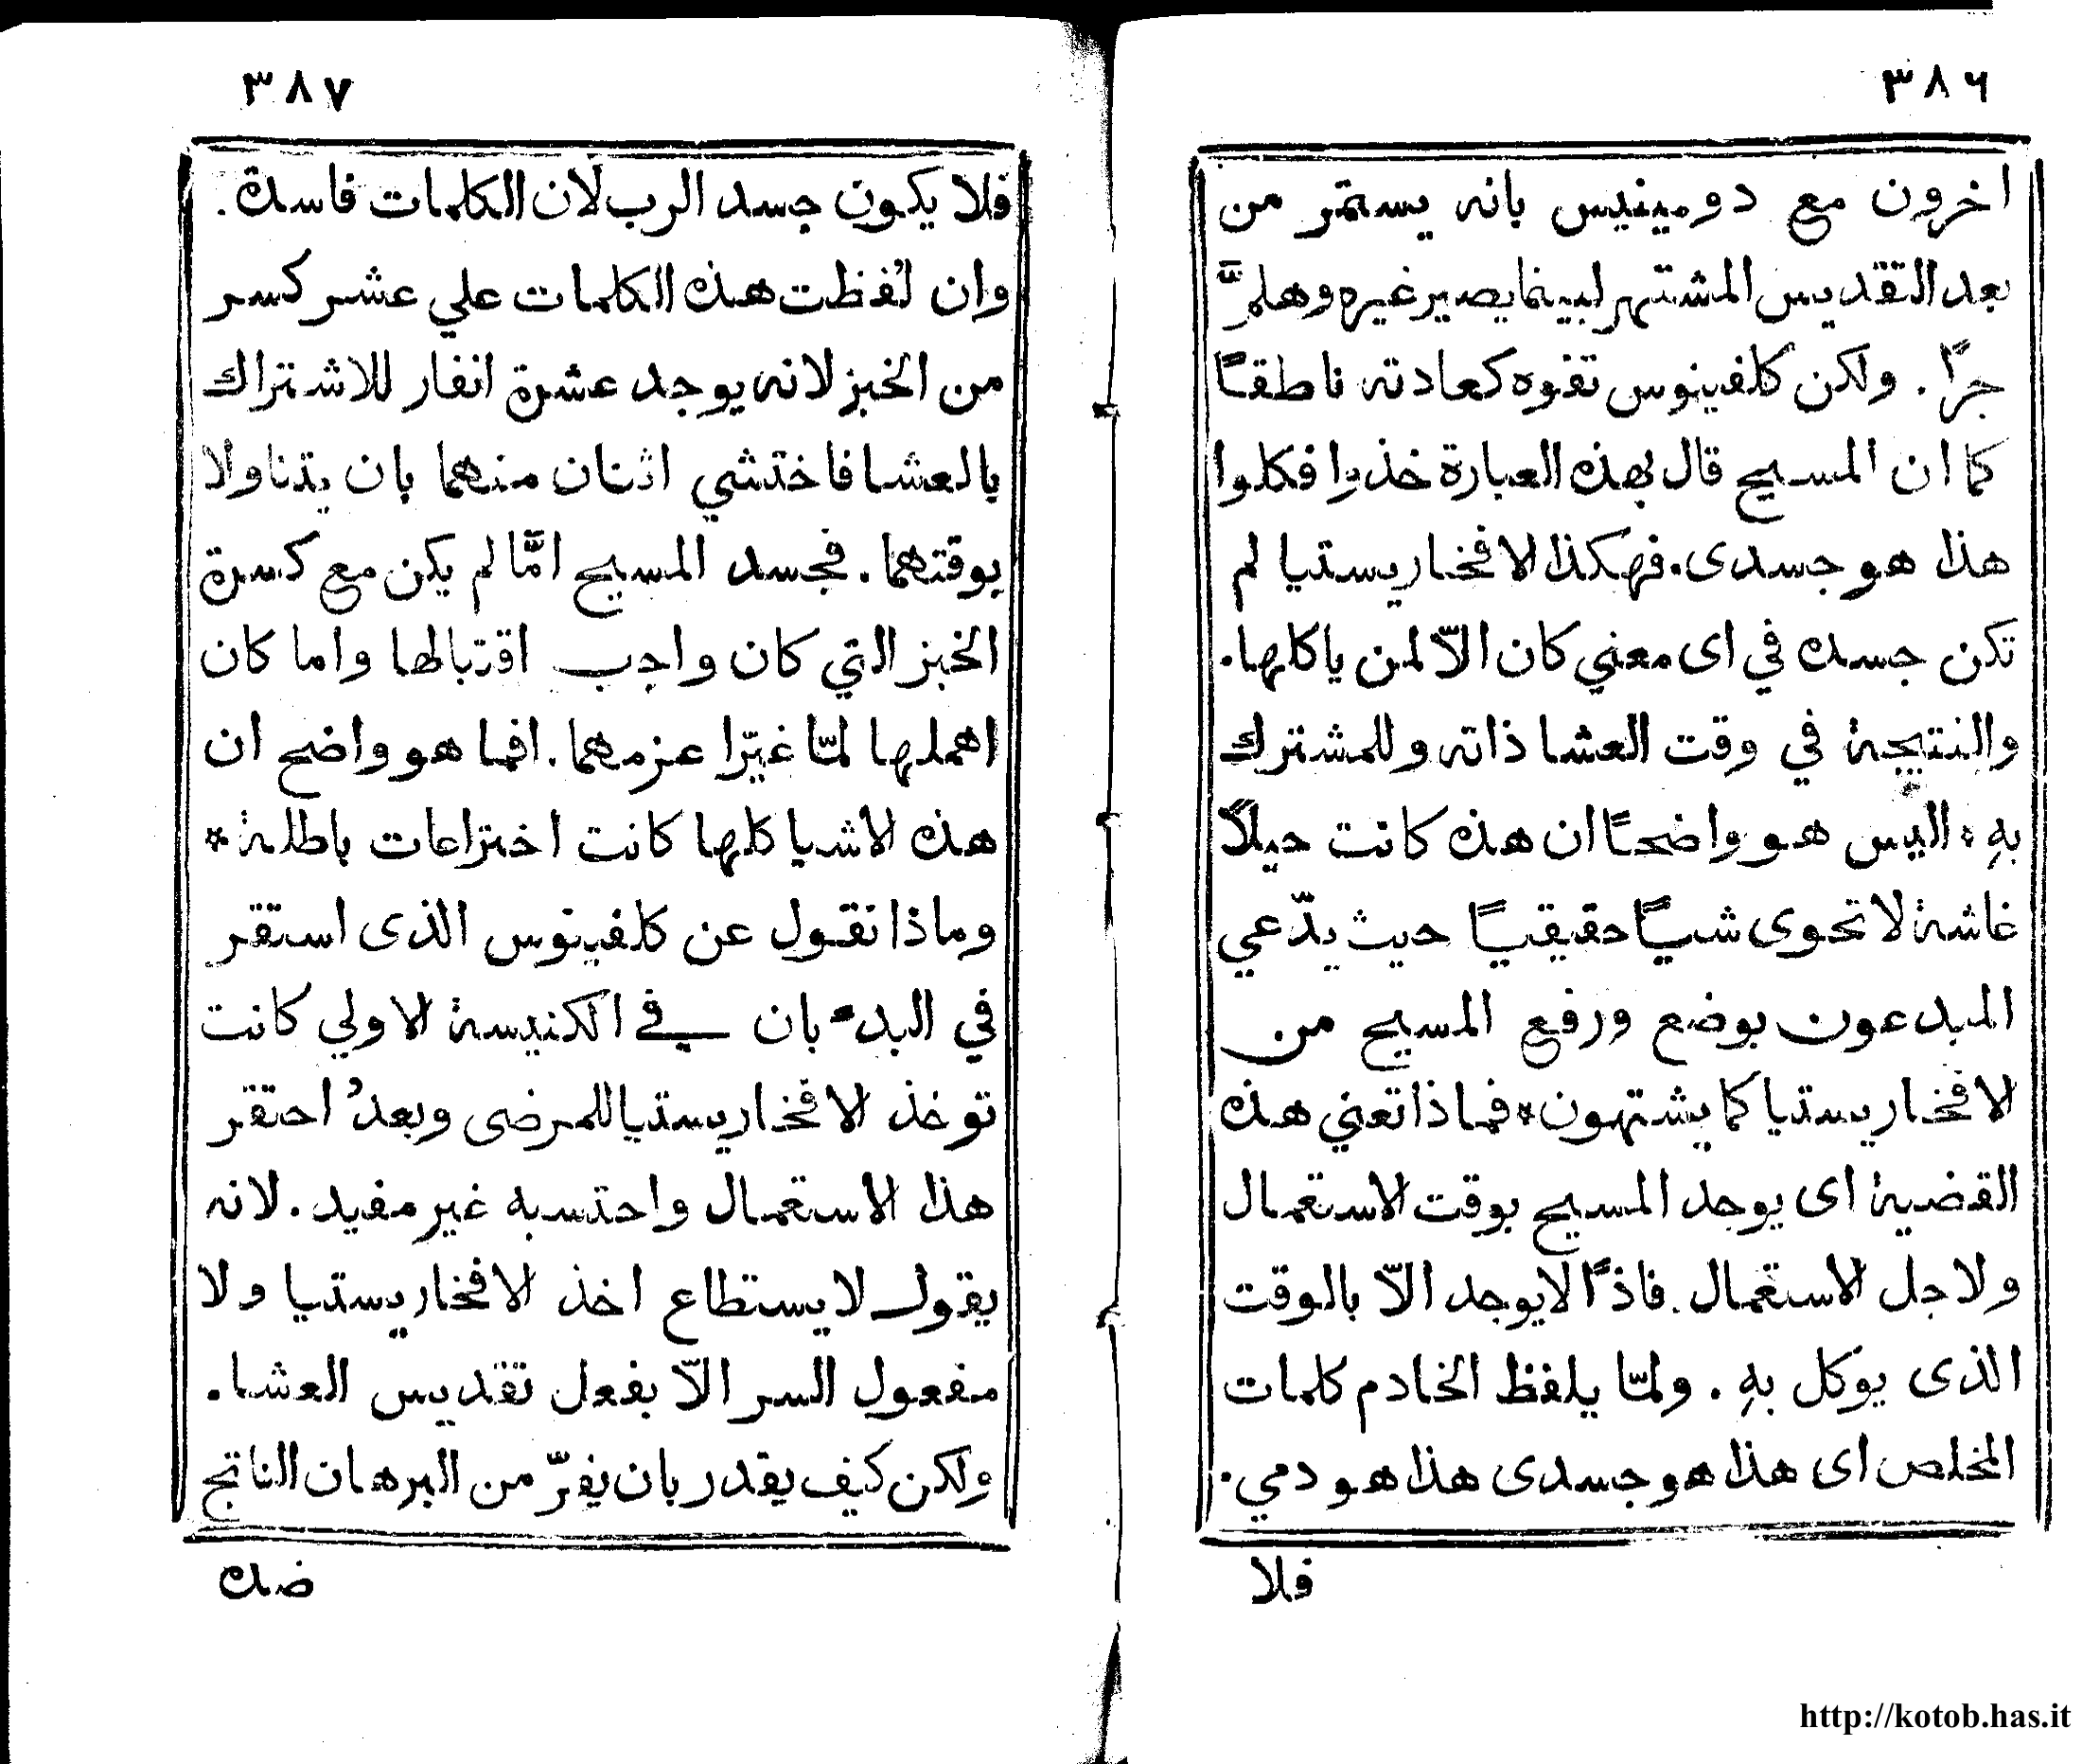 ٣٨٦
اخرون مع دومينيس بانه يستمر من
بعد التقديس المشتهر لبينما يصير غيره وهلمَّ
جرًا. ولكن كلفينوس تفوه كعادته ناطقًا
كما ان المسيح قال بهذه العبارة خذوا فكلوا
هذا هو جسدى. فهكذا الافخاريستيا لم
تكن جسده في اى معني كان الاّ لمن ياكلها.
والنتيجة في وقت العشا ذاته وللمشترك
بهِ. اليس هو واضحًا ان هذه كانت حيلاً
غاشة لا تحوى شيًا حقيقيًا حيث يدّعي
المبدعون بوضع ورفع المسيح من
الافخاريستيا كما يشتهون * فماذا تعني هذه
القضية اى يوجد المسيح بوقت الاستعمال
ولاجل الاستعمال. فاذًا لا يوجد الاّ بالوقت
الذى يوكل بهِ. ولمّا يلفظ الخادم كلمات
المخلص اى هذا هو جسدى هذا هو دمي.
فلا
٣٨٧
فلا يكون جسد الرب لان الكلمات فاسدة.
وان لُفظت هذه الكلمات علي عشر كسر
من الخبز لانه يوجد عشرة انفار للاشتراك
بالعشا فاختشي اثنان منهما بان يتناولا
بوقتهما. فجسد المسيح امَّا لم يكن مع كسرة
الخبز التي كان واجب اقتبالها واما كان
اهملها لمّا غيّرا عزمهما. افما هو واضح ان
هذه الاشيا كلها كانت اختراعات باطلة *
وماذا نقول عن كلفينوس الذى استقر
في البدء بان في الكنيسة الاولي كانت
توخذ الافخاريستيا للمرضى وبعدُ احتقر
هذا الاستعمال واحتسبه غير مفيد. لانه
يقول لا يستطاع اخذ الافخاريستيا ولا
مفعول السر الاّ بفعل تقديس العشا.
ولكن كيف يقدر بان يفرّ من البرهان الناتج
ضده
http://kotob.has.it